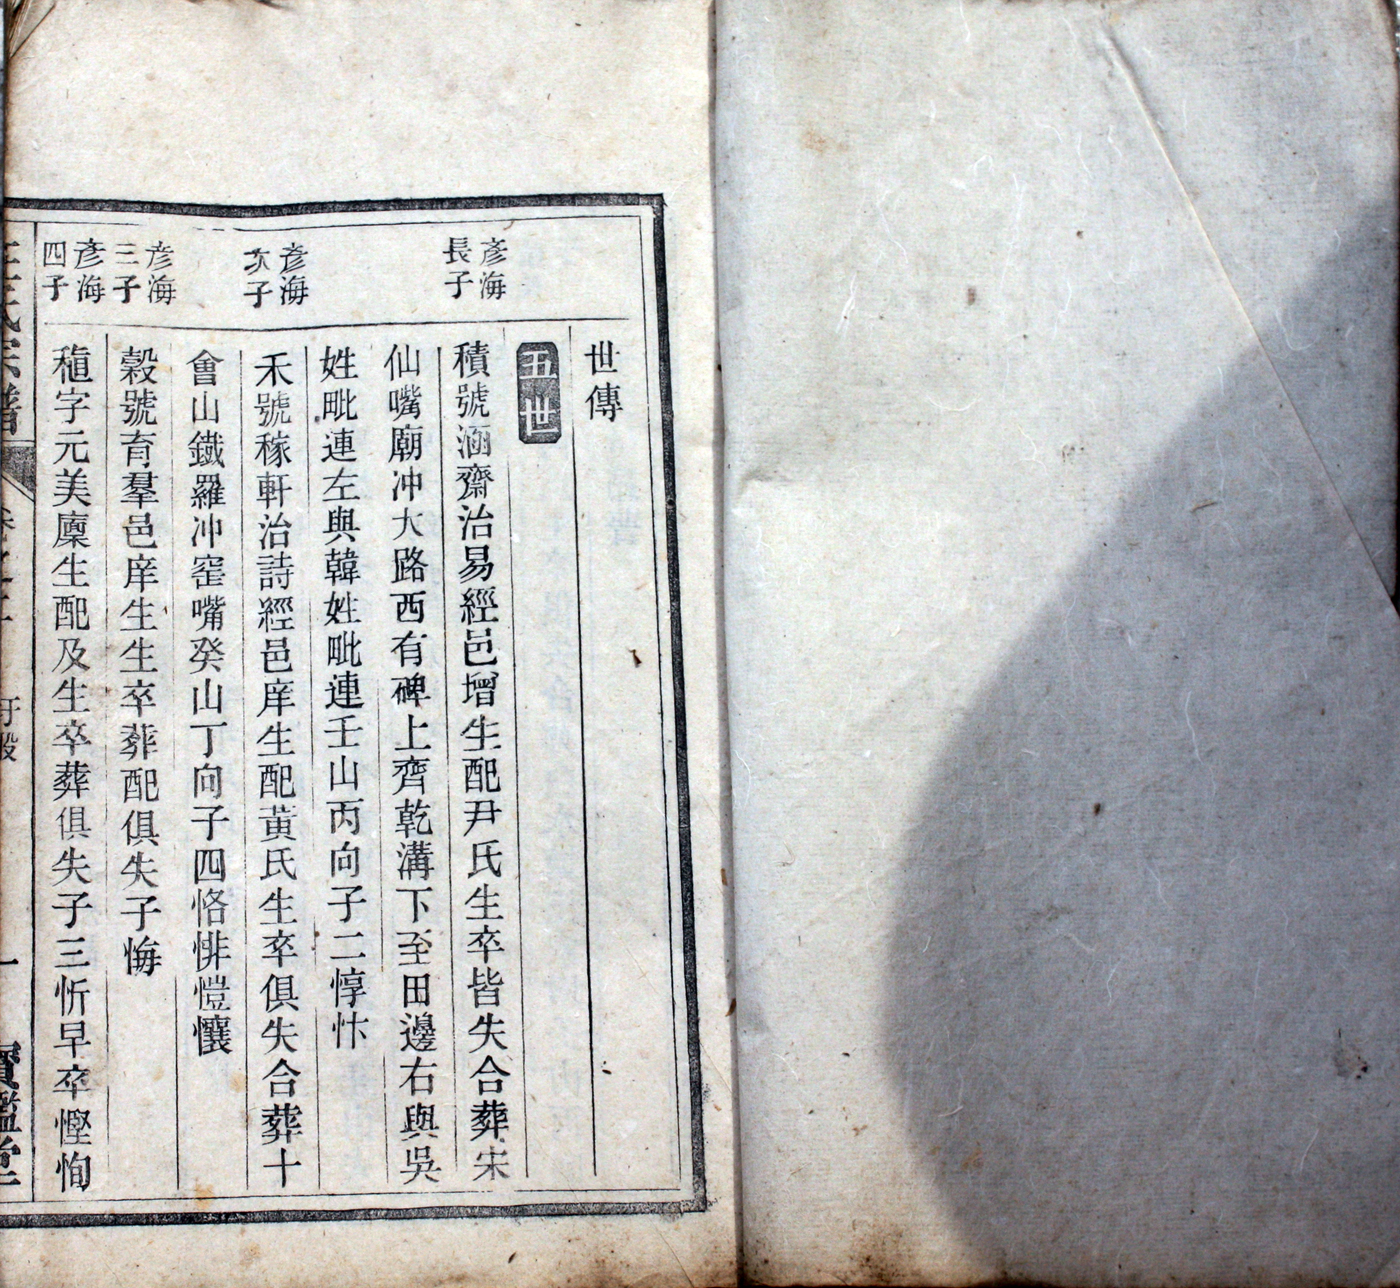 世傳
五世
彥海
長子
積號涵齋治易經邑增生配尹氏生卒皆失合葬宋
仙嘴廟冲大路西有碑上齊乾溝下至田邊右與吳
姓毗連左與韓姓毗連壬山丙向子二惇忭
彥海
次子
禾號稼軒治詩經邑庠生配黃氏生卒俱失合葬十
會山鐵羅冲窑嘴癸山丁向子四恪悱愷懷
彥海
三子
穀號育羣邑庠生生卒葬配俱失子悔
彥海
四子
稙字元美廩生配及生卒葬俱失子三忻早卒慳恂
氏宗譜
一
寶鑑堂